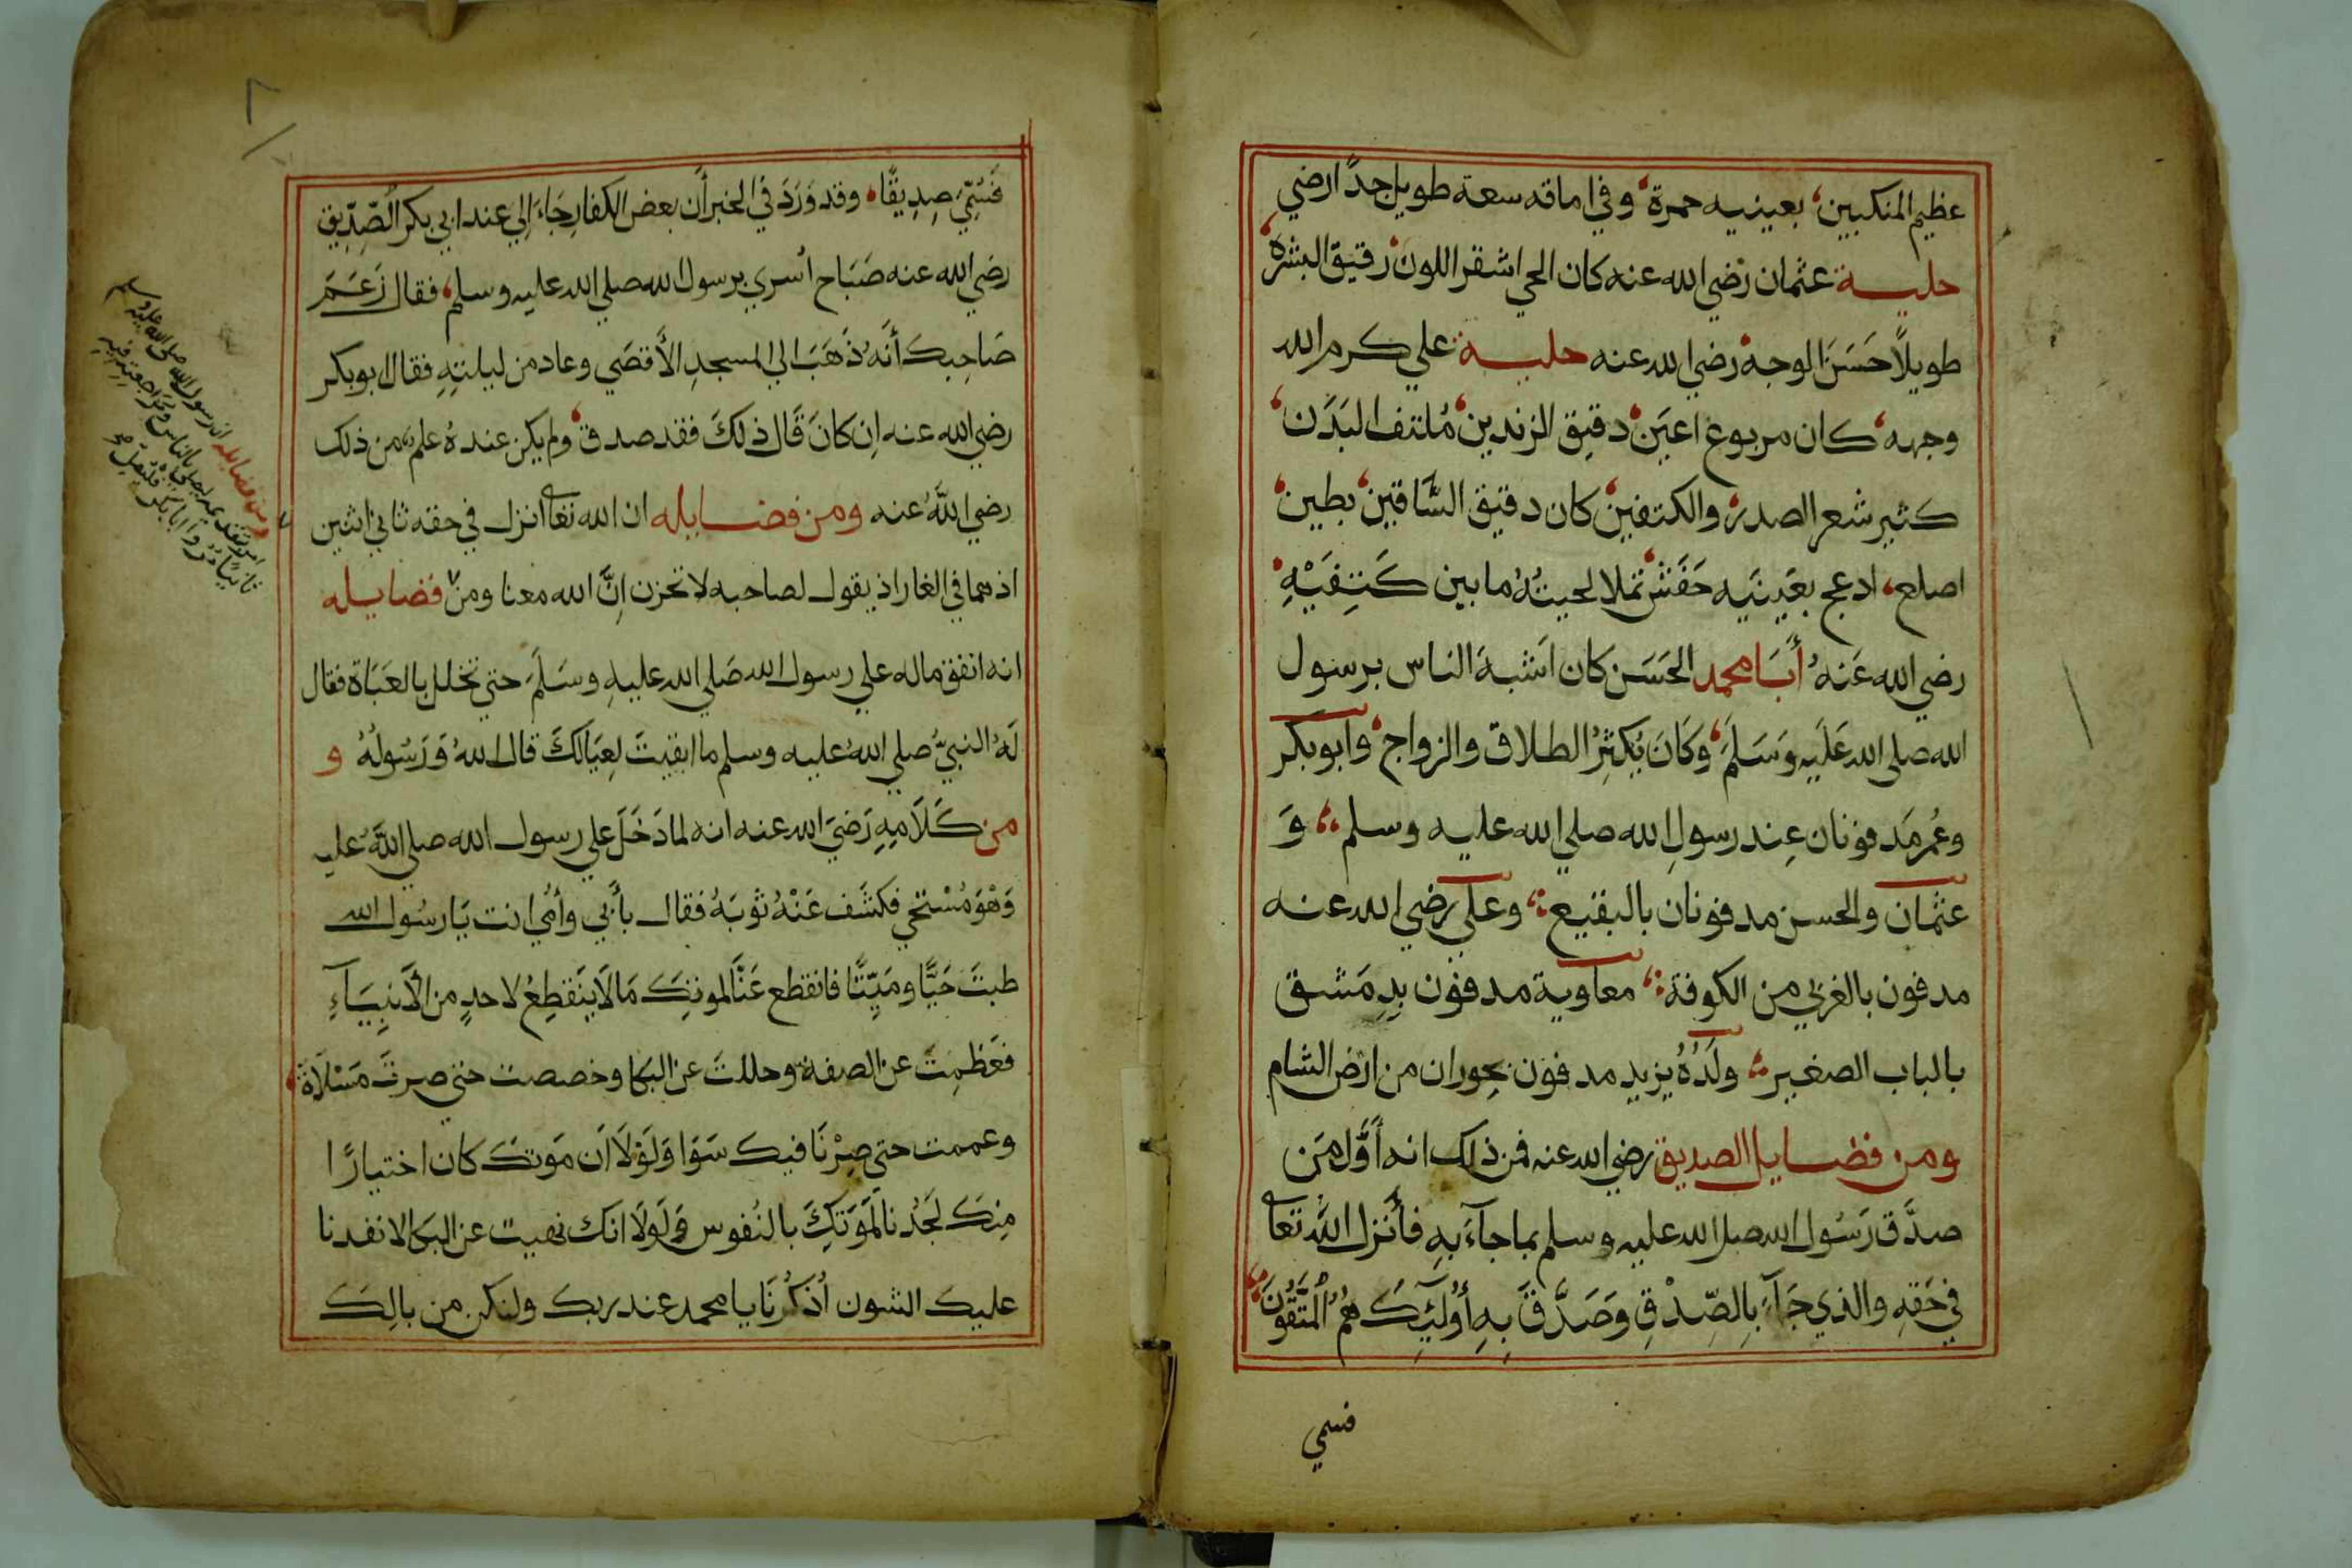 عظيم المنكبين، بعينيه حمرة، وفي اماقه سعة طويل جدًّا رضي
حليــة عثمان رضي الله عنه كان الحي اشقر اللون رقيق البشره
طويلاً حَسَنَ الوجه رضي الله عنه حليـة علي كرم الله
وجهه، كان مربوع اعيَن دقيق الزندين، مُلتف البَدَن
كثير شعر الصدر والكتفين كان دقيق السَّاقين بطين
اصلع، ادعج بعَينَيه حَفَش تملا لحيتُهُ ما بين كَتِفَيْهِ
رضي الله عَنهُ أَبَا محمد الحَسَن كان اَشبهَ الناس برسول
الله صلى الله عَلَيهِ وَسَلَمَ، وَكَانَ يُكثِرُ الطلاق والزواج، وابوبكر
وعُمر مَدفونان عِند رسولِ الله صلي الله عليه وسلم، وَ
عثمان والحسن مدفونان بالبقيع، وعلي رضي الله عنه
مدفون بالغربي من الكوفة، معاوية مدفون بِدِمَشق
بالباب الصغير، ولَدُهُ يزيد مدفون بحوران من ارض الشام
ومن فضايل الصديق رضي الله عنه فمن ذلك انه أَوَّل مَن
صدَّق رَسُول الله صلى الله عليه وسلم بما جآءَ بِهِ فأَنزل اللَّه تعا
في حَقِهِ والذي جَآءَ بِالصِّدْقِ وَصَدَّقَ بِهِ أُولَئِكَ هُمُ الْمُتَّقُونَ
فسمي
فَسُمِّيَ صِدِيقًا، وقد وَرَدَ في الخبر أَن بعض الكفار جَاءَ اِلي عند ابي بكر الصِّدِّيق
رضي الله عنه صَبَاح اُسري برسول الله صلي الله عليه وسلم، فقال زَعَمَ
صَاحِبك أَنَّهُ ذَهَبَ الي المسجدِ الأَقصَي وعاد من ليلتِهِ فقال ابوبكر
رضي الله عنه اِن كانَ قَال ذلكَ فقد صدق، ولم يكن عندهُ علم من ذلك
رضي اللَّهُ عنه ومن فضــايله ان الله تعا انزل في حقه ثاني اثنين
اذ هما في الغار اذ يقول لصاحبه لا تحزن اِنَّ الله معنا ومن فضايله
انه انفق ماله علي رسول الله صَلي الله عليهِ وسَلَمَ حتي تخلل بالعَبَاة فقال
لَهُ النبيُّ صلي اللهُ عليه وسلم ما ابقيتَ لِعِيَالكَ قال اللهُ وَرَسُولُهُ و
من كَلَامِهِ رَضيَ الله عنه انه لما دَخَلَ علي رسول الله صلي اللَّهُ عليه
وَهْوَ مُسْتحي فكشَف عَنْهُ ثوبَهُ فقال بأَبي وأُمي انت يَا رسُول الله
طبتَ حَيًّا ومَيِّتًّا فانقطع عَنَّا لموتِكَ مَا لَا ينَقطِعُ لاحدٍ من الأَنبِيَآءِ
فعَظمِتَ عن الصفة وحللتَ عن البكا وخصصت حتي صرتَ مَسْلَاةً
وعممت حتي صِرْنَا فيكَ سَوَا وَلَوْلَا اَن مَوتكَ كان اختيارًا
مِنكَ لَجُدْنا لَمَوَتكَ بالنُفوس وَلَولَا انك نهيت عن البكا لانفدنا
عليك الشون اُذكُرنَا يا محمد عند ربك ولنكن من بالِكَ
ومن فضايله ان رسول الله صلي الله عليه وسلم
امر بتقديمه ليصلي بالناس